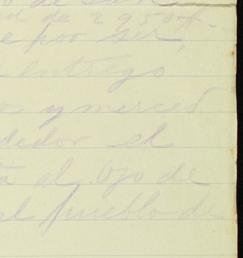 de 2950
e por ser
entrego
os y merced
dedor el
a al Ojo de
el pueblo de